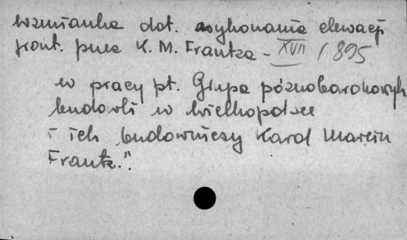 wzmianka dot. wykonania elewacji
front. przez K. M. Frantza - XVII / 895
w pracy pt. Grupa późnobarokowych
budowli w Wielkopolsce
i ich budowniczy Karol Marcin
Frantz."